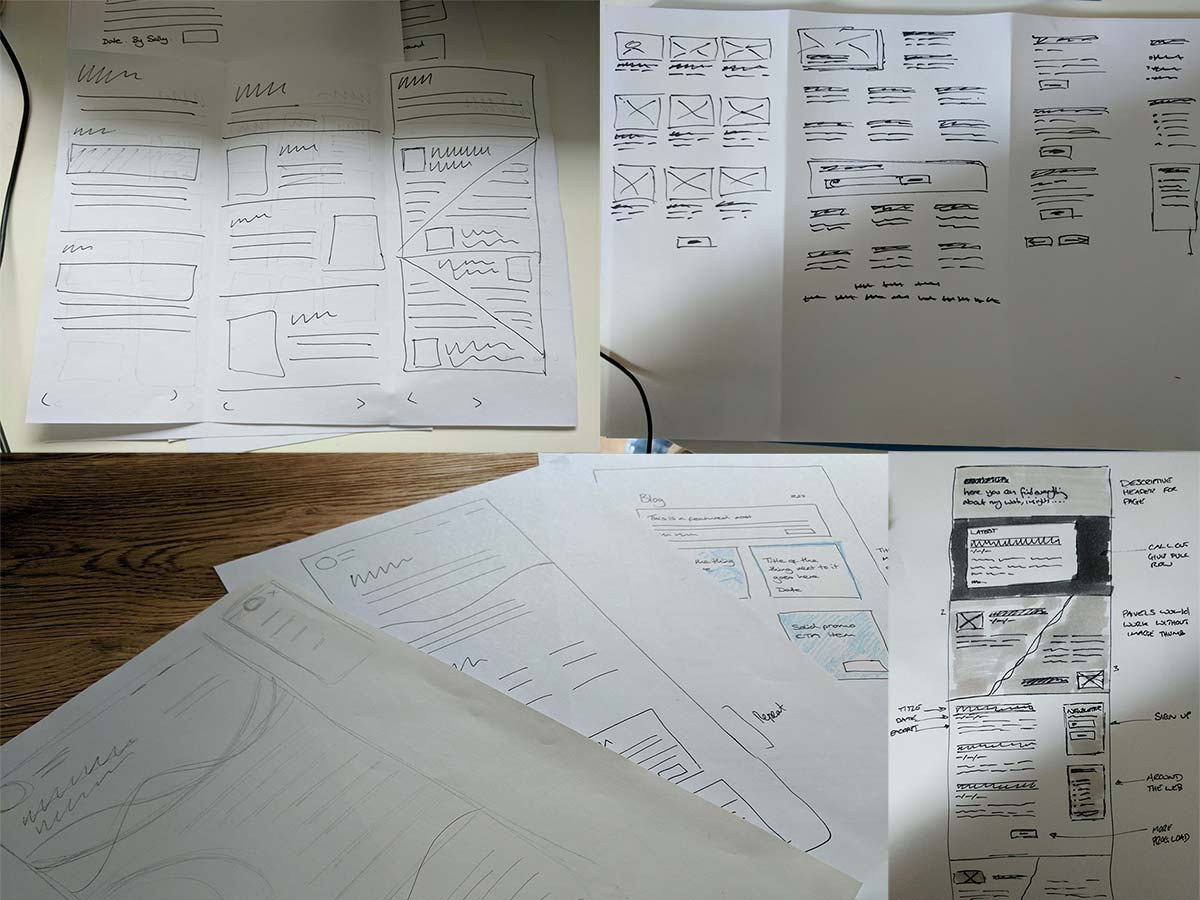 Date By Sally
Blog
This is a featured post
the thing
Title of the
thing next to it
goes here
Date
Said promo
CTA item
Repeat
here you can find everything
about my web, insight....
DESCRIPTIVE
HEADER FOR
PAGE
LATEST
-/-/-
CALL OUT
GIVE FULL
ROW
2
-/-/-
PANELS WOULD
WORK WITHOUT
IMAGE THUMB
3
TITLE
DATE
EXCERPT
-/-/-
NEWSLETTER
SIGN UP
-/-/-
AROUND
THE WEB
-/-/-
MORE
PROG. LOAD